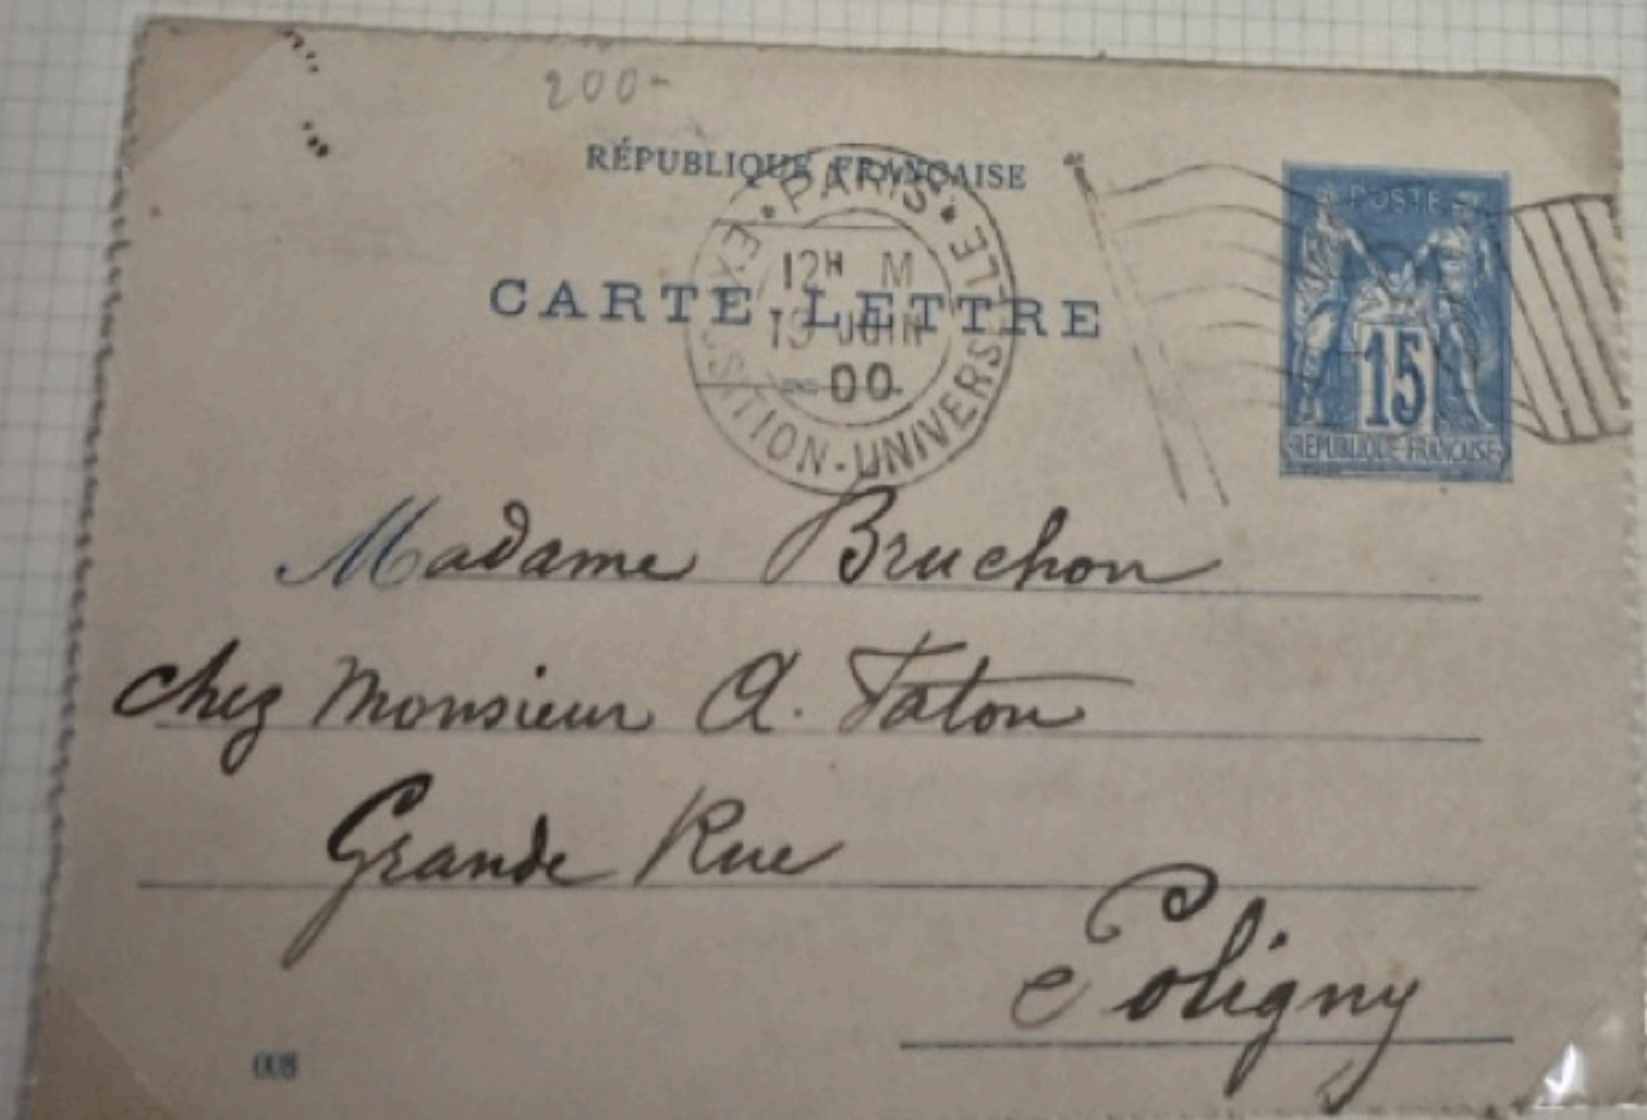 200-
RÉPUBLIQUE FRANÇAISE
CARTE-LETTRE
PARIS
EXPOSITION-UNIVERSELLE
12H M
JUIN
00
POSTE
15
REPUBLIQUE FRANÇAISE
Madame Bruchon
chez Monsieur A. Taton
Grande Rue
Poligny